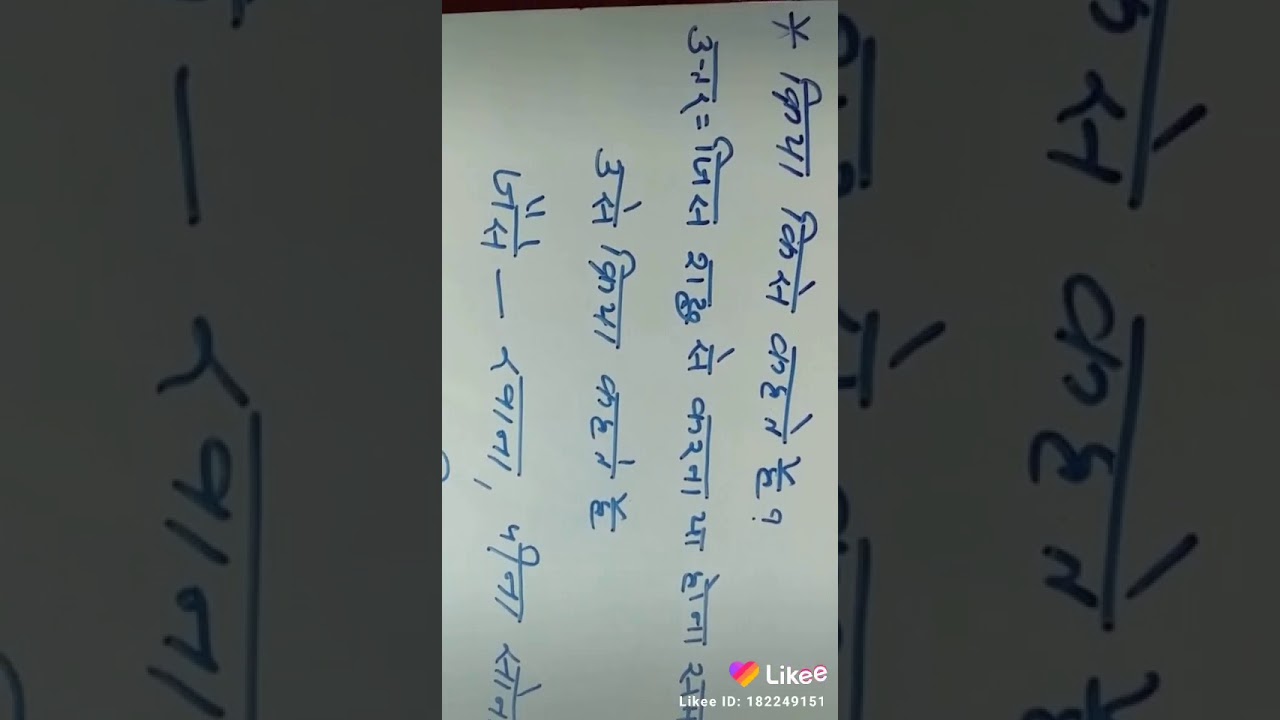 * क्रिया किसे कहते हैं?
उत्तर = जिस शब्द से करना या होना
उसे क्रिया कहते हैं
जैसे — खाना, पीना
Likee
Likee ID: 182249151